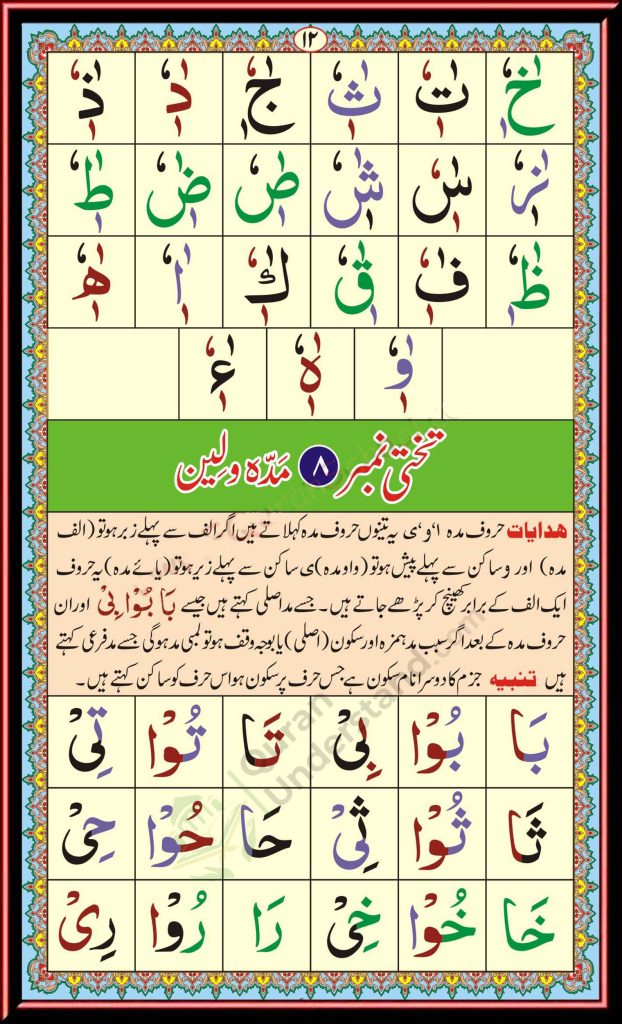 ۱۲
خٰٖٗ تٰٖٗ ثٰٖٗ جٰٖٗ دٰٖٗ ذٰٖٗ
زٰٖٗ سٰٖٗ شٰٖٗ صٰٖٗ ضٰٖٗ طٰٖٗ
ظٰٖٗ فٰٖٗ قٰٖٗ كٰٖٗ اٰٖٗ ھٰٖٗ
وٰٖٗ ہٰٖٗ ءٰٖٗ
تختی نمبر ۸ مَدّہ و لِین
ھدایات حروف مدہ ا، و، ی یہ تینوں حروف مدہ کہلاتے ہیں اگر الف سے پہلے زبر ہو تو (الف
مدہ) اور و ساکن سے پہلے پیش ہو تو (واو مدہ) ی ساکن سے پہلے زیر ہو تو (یائے مدہ) یہ حروف
ایک الف کے برابر کھینچ کر پڑھے جاتے ہیں۔ جسے مد اصلی کہتے ہیں جیسے بَا بُوْا بِیْ اور ان
حروف مدہ کے بعد اگر سبب مد ہمزہ اور سکون (اصلی) یا بوجہ وقف ہو تو لمبی مد ہوگی جسے مد فرعی کہتے
ہیں تنبیہ جزم کا دوسرا نام سکون ہے جس حرف پر سکون ہو اس حرف کو ساکن کہتے ہیں۔
بَا بُوْا بِیْ تَا تُوْا تِیْ
ثَا ثُوْا ثِیْ حَا حُوْا حِیْ
خَا خُوْا خِیْ رَا رُوْا رِیْ
Quran
Understand.com